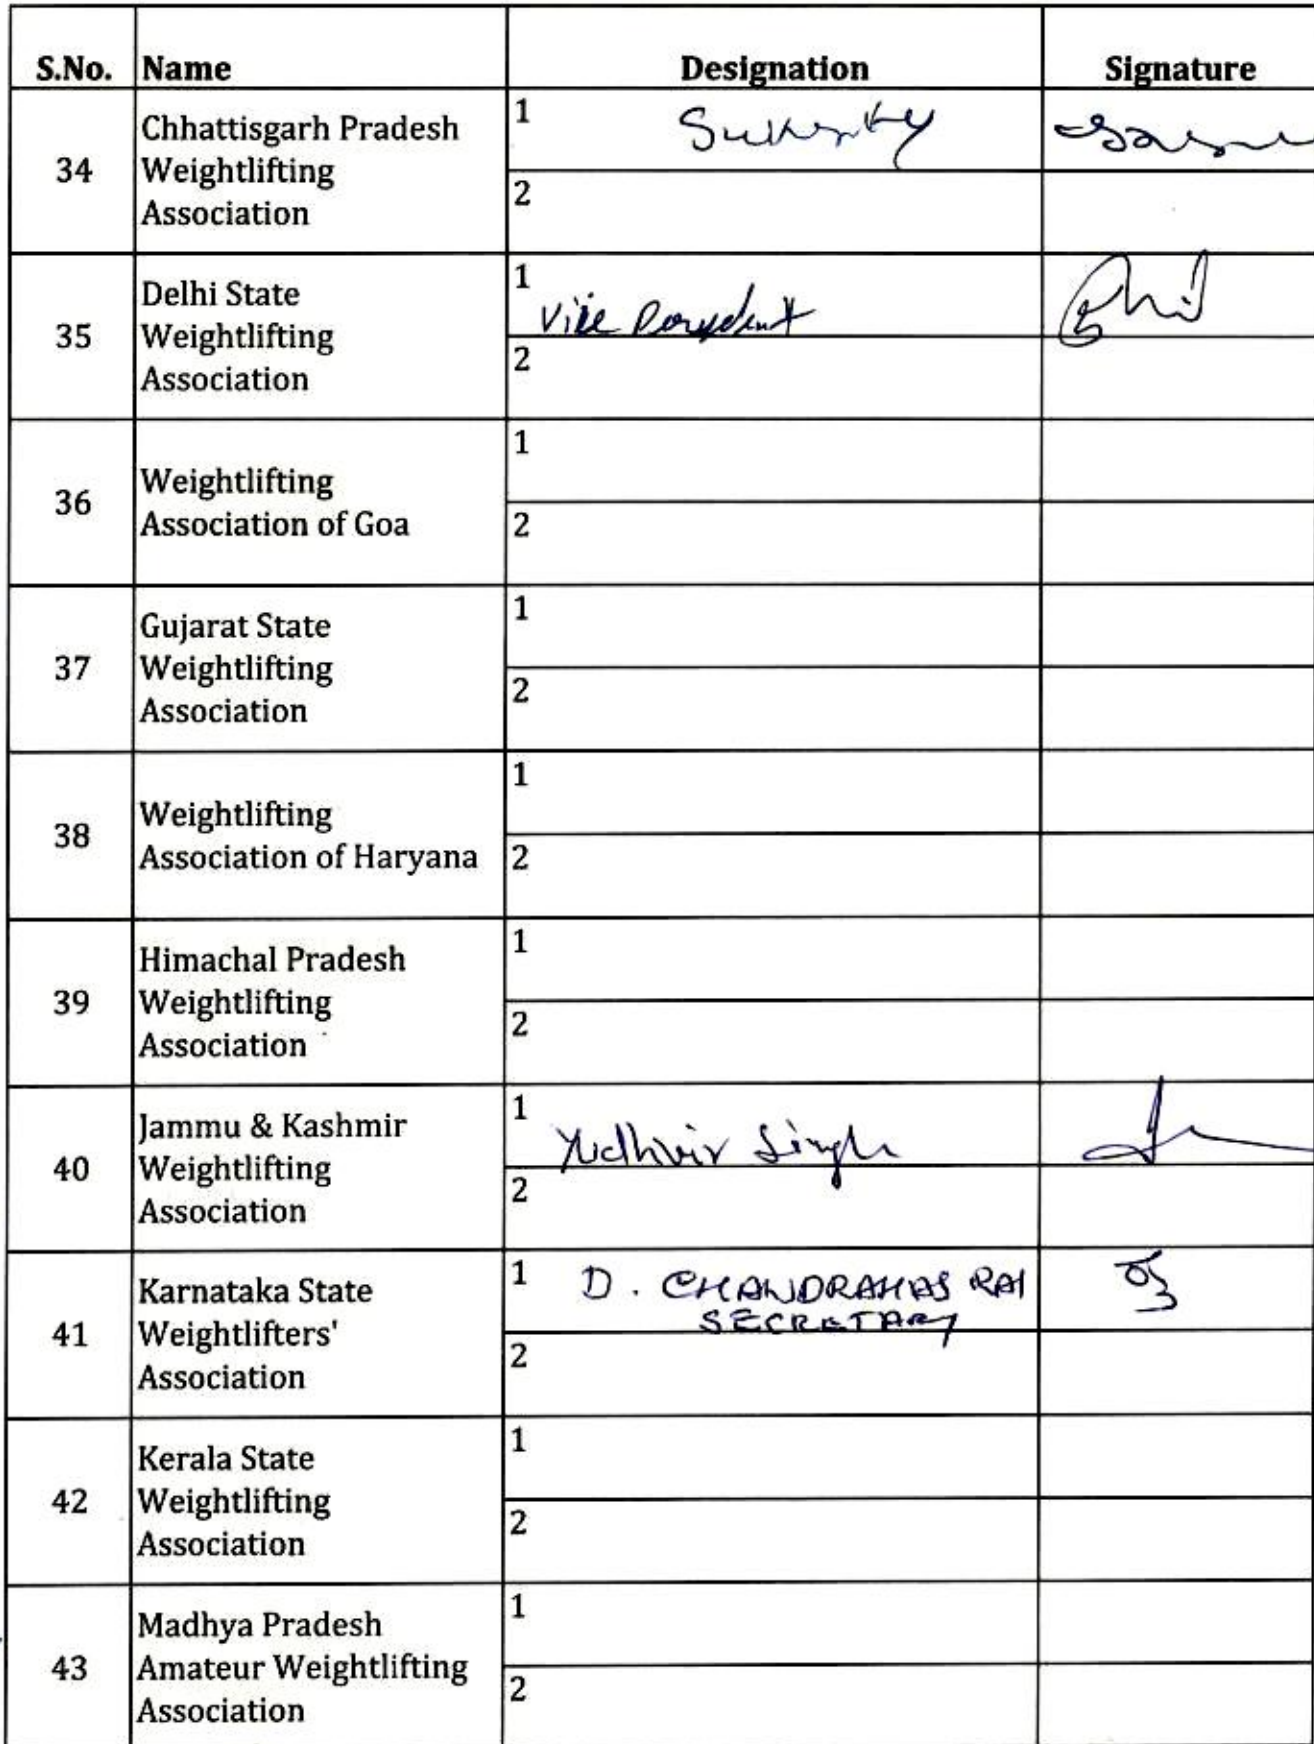 S.No. Name Designation Signature
34
Chhattisgarh Pradesh
Weightlifting
Association
1
2
35
Delhi State
Weightlifting
Association
1 Vice
2
36
Weightlifting
Association of Goa
1
2
37
Gujarat State
Weightlifting
Association
1
2
38
Weightlifting
Association of Haryana
1
2
39
Himachal Pradesh
Weightlifting
Association
1
2
40
Jammu & Kashmir
Weightlifting
Association
1 Yudhvir Singh
2
41
Karnataka State
Weightlifters'
Association
1 D. CHANDRAHAS RAI
SECRETARY
2
42
Kerala State
Weightlifting
Association
1
2
43
Madhya Pradesh
Amateur Weightlifting
Association
1
2